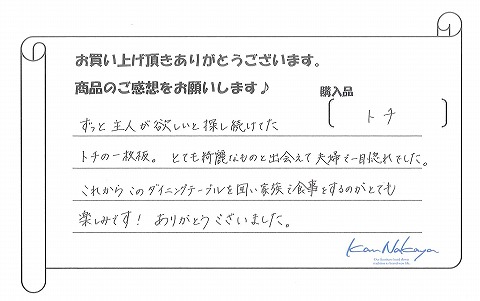 お買い上げ頂きありがとうございます。
商品のご感想をお願いします♪
購入品
トチ
ずっと主人が欲しいと探し続けてた
トチの一枚板。とても綺麗なものと出会えて夫婦で一目惚れでした。
これからこのダイニングテーブルを囲い家族で食事をするのがとても
楽しみです！ありがとうございました。
KanNakaya